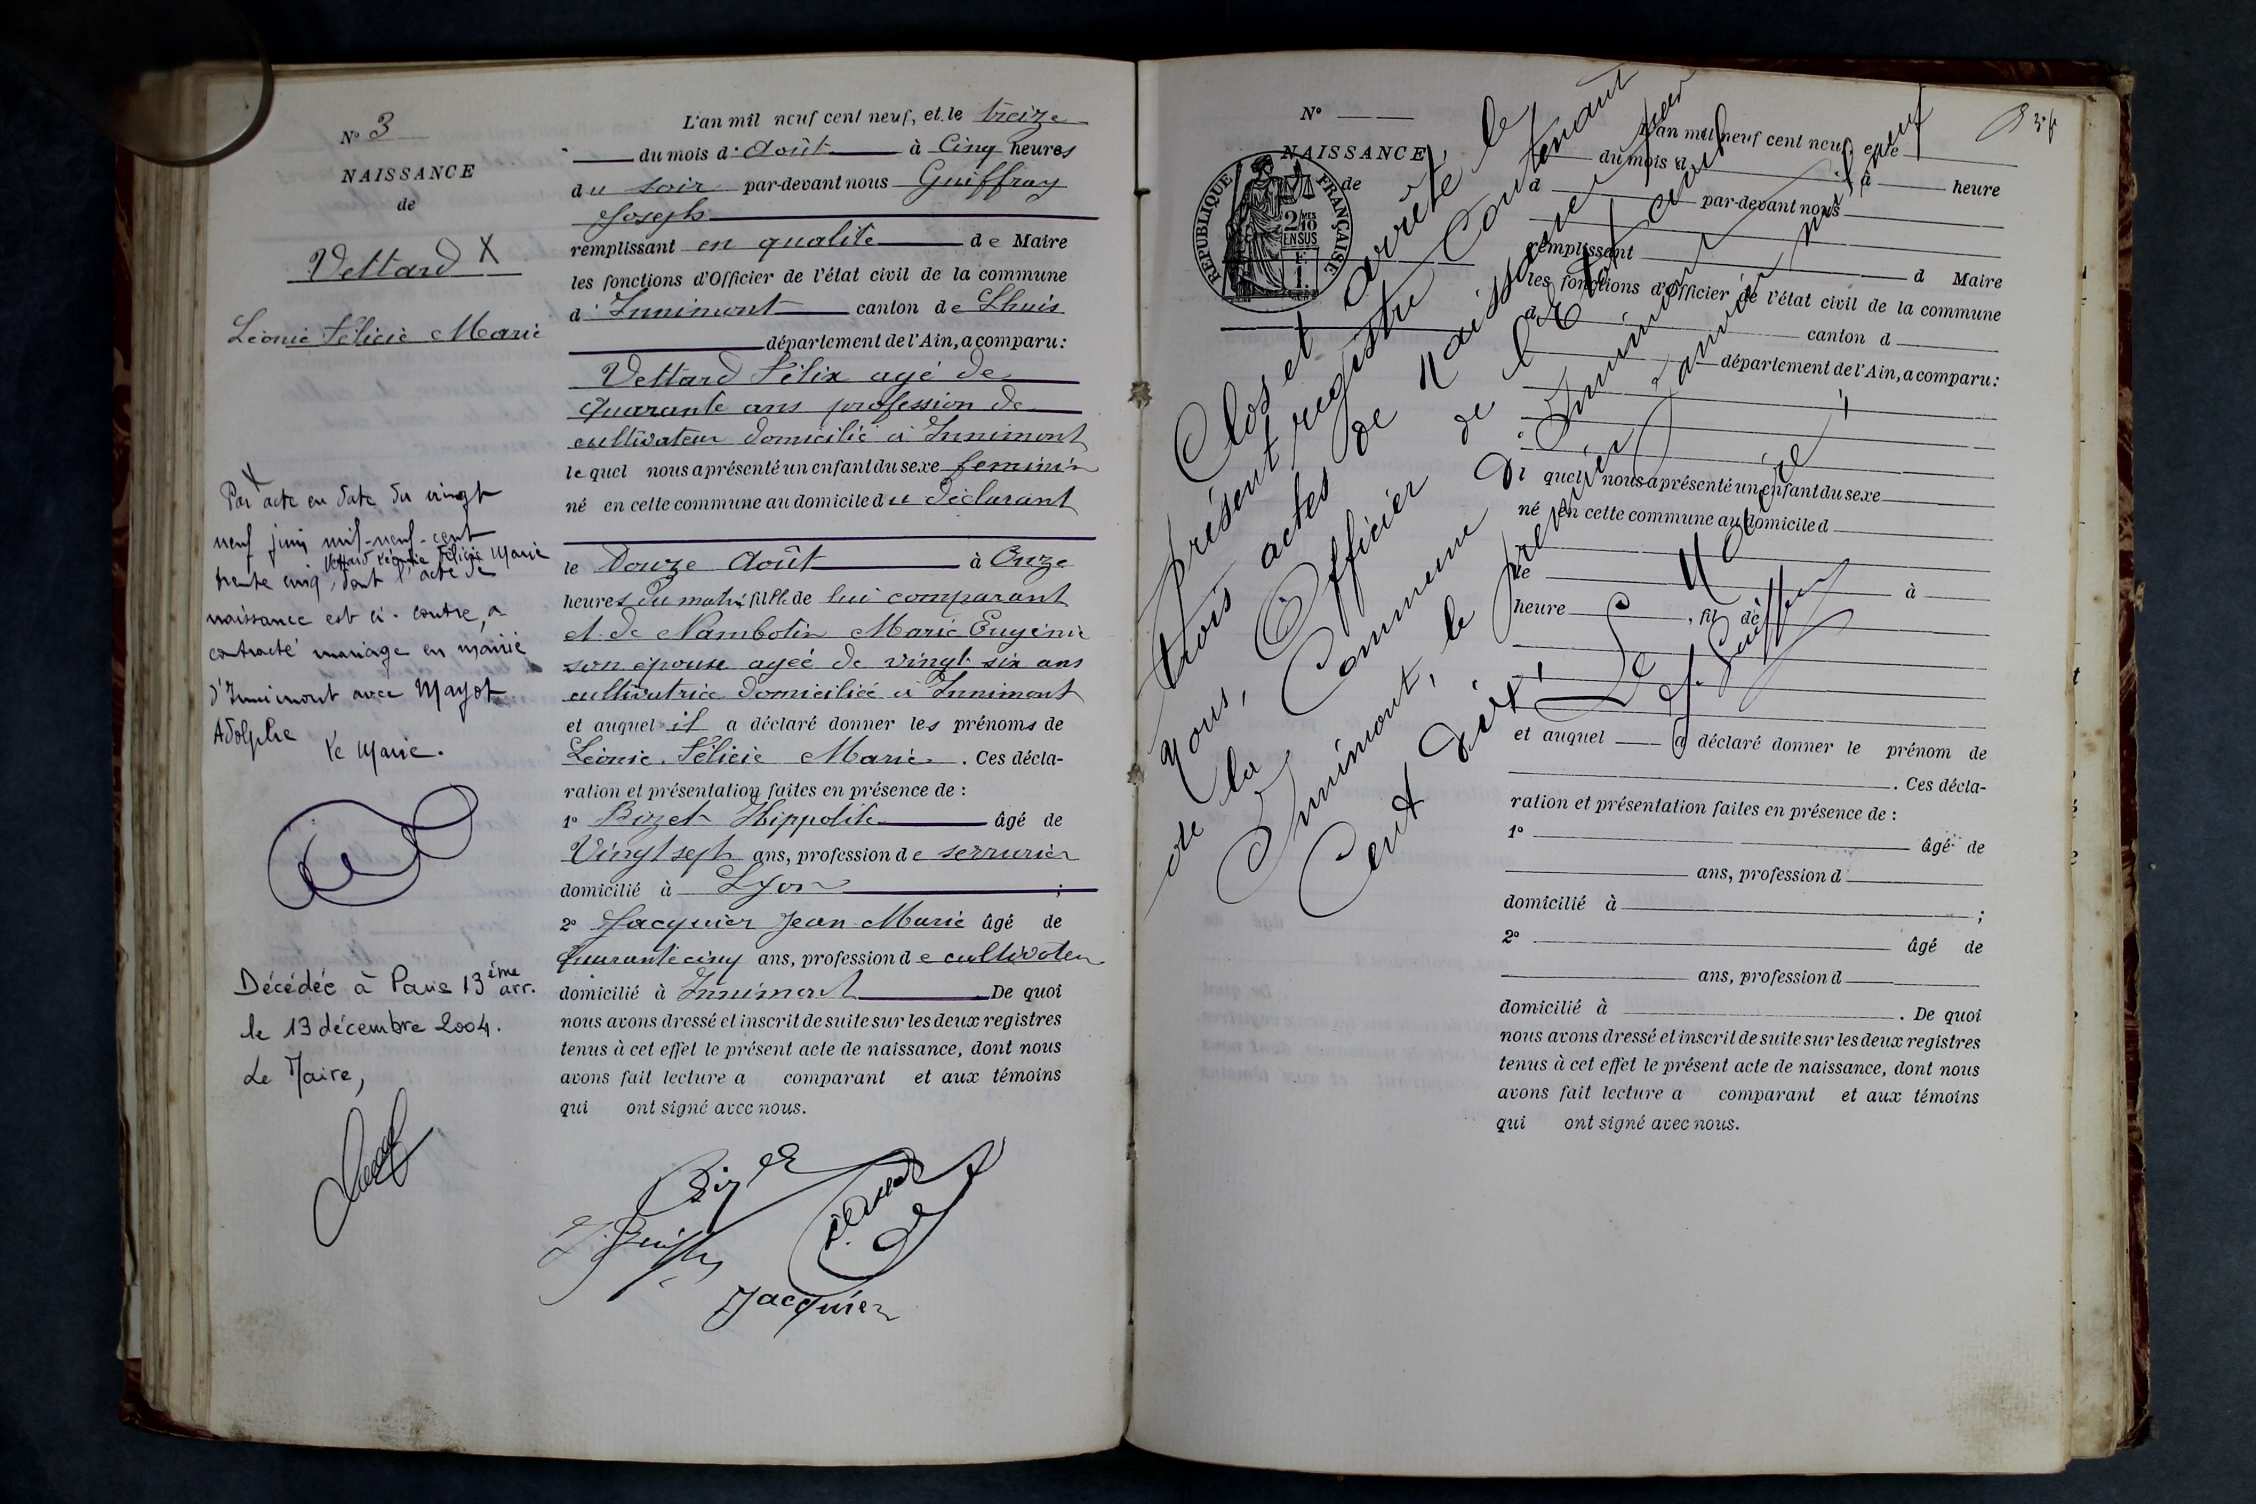 N° 3
NAISSANCE
de
Vettard X
Léonie Félicie Marie
X
Par acte en date du vingt
neuf juin mil-neuf-cent
Vettard Léonie Félicie Marie
trente cinq, dont l'acte de
naissance est ci-contre, a
contracté mariage en mairie
d'Innimont avec Mayot
Adolphe
Le Maire.
Décédée à Paris 13ème arr.
le 13 décembre 2004.
Le Maire,
L'an mil neuf cent neuf, et le treize
du mois d'Août à Cinq heures
du soir par-devant nous Guiffray
Joseph
remplissant en qualité de Maire
les fonctions d'Officier de l'état civil de la commune
d'Innimont canton de Lhuis
département de l'Ain, a comparu:
Vettard Félix agé de
quarante ans profession de
cultivateur domicilié à Innimont
le quel nous a présenté un enfant du sexe feminin
né en cette commune au domicile du déclarant
le Douze Août à Onze
heures du matin fille de lui comparant
et de Nambotin Marie Eugénie
son épouse agée de vingt six ans
cultivatrice domiciliée à Innimont
et auquel il a déclaré donner les prénoms de
Léonie Félicie Marie. Ces décla-
ration et présentation faites en présence de :
1° Bizet Hippolite âgé de
Vingt sept ans, profession de serrurier
domicilié à Lyon ;
2° Jacquier Jean Marie âgé de
Quarante cinq ans, profession de cultivateur
domicilié à Innimont De quoi
nous avons dressé et inscrit de suite sur les deux registres
tenus à cet effet le présent acte de naissance, dont nous
avons fait lecture a comparant et aux témoins
qui ont signé avec nous.
Bizet
J. Guiffray
Jacquier
N°
NAISSANCE
de
RÉPUBLIQUE FRANÇAISE
2/10MES
EN SUS
1 F.
L'an mil neuf cent neuf, et le
du mois d à heure
d par-devant nous
remplissant d Maire
les fonctions d'Officier de l'état civil de la commune
d canton d
département de l'Ain, a comparu:
le quel nous a présenté un enfant du sexe
né en cette commune au domicile d
le à
heure , fil de
et auquel a déclaré donner le prénom de
. Ces décla-
ration et présentation faites en présence de :
1° âgé de
ans, profession d
domicilié à ;
2° âgé de
ans, profession d
domicilié à . De quoi
nous avons dressé et inscrit de suite sur les deux registres
tenus à cet effet le présent acte de naissance, dont nous
avons fait lecture a comparant et aux témoins
qui ont signé avec nous.
Clos et arrêté le
présent registre contenant
trois actes de naissance par
nous, Officier de l'Etat civil
de la Commune d'Innimont
Innimont, le premier Janvier mil neuf
Cent dix.
Le Maire
J. Guiffray